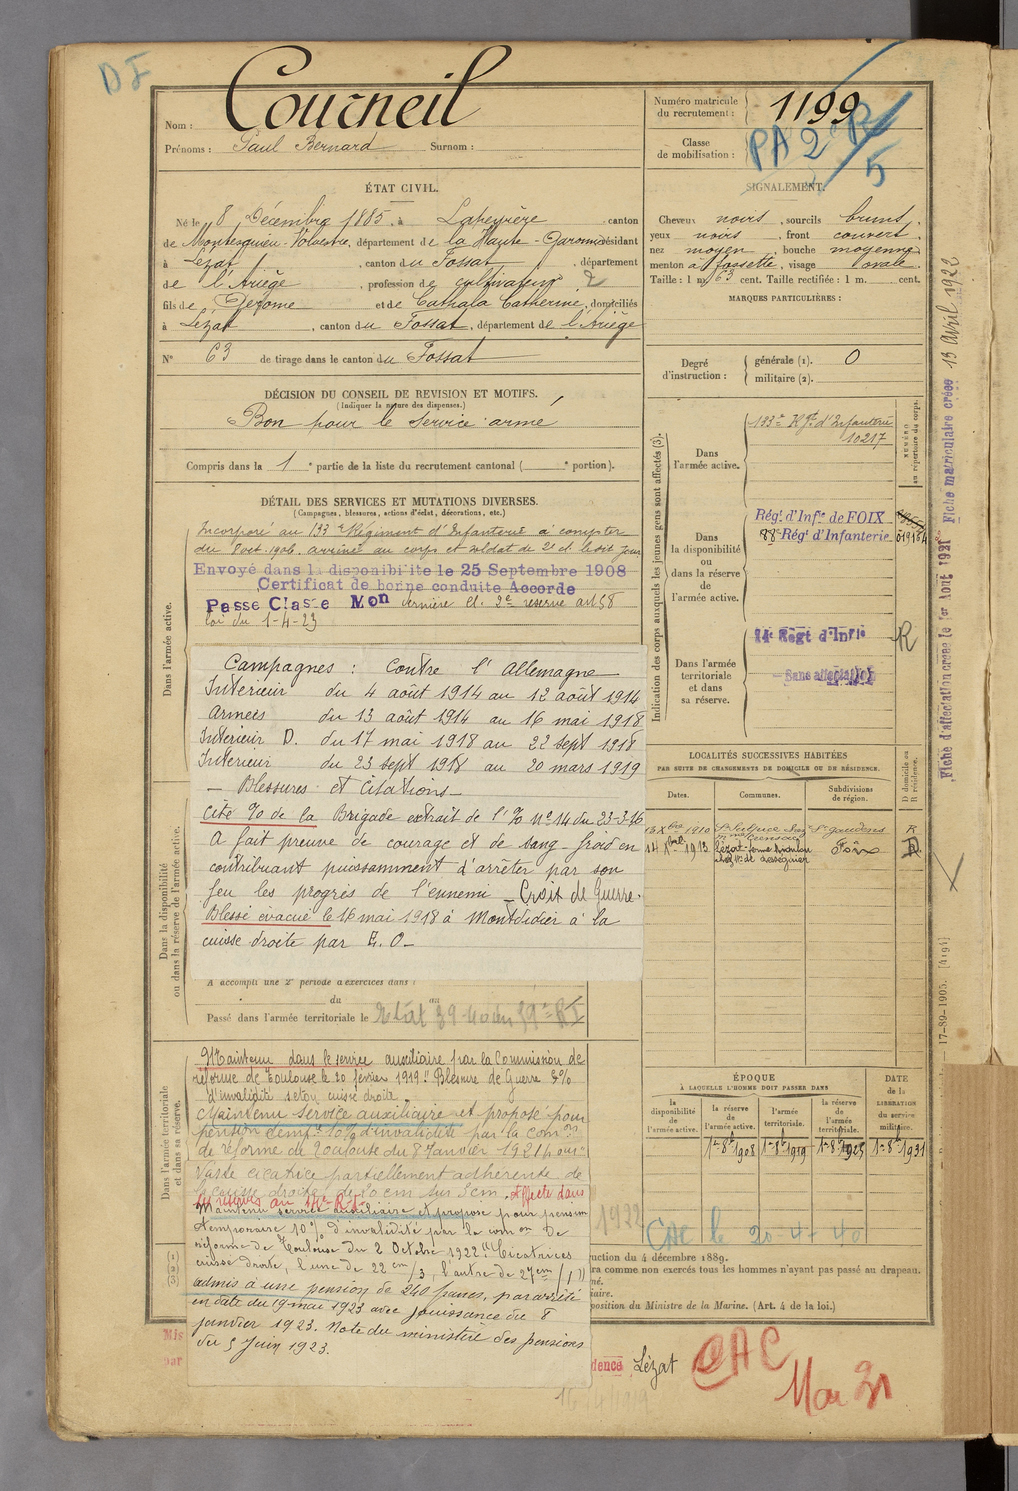 DF
Nom : Courneil
Prénoms : Paul Bernard Surnom :
Numéro matricule du recrutement : 1199
Classe de mobilisation :
PA 2e R/5
ÉTAT CIVIL.
Né le 8 Décembre 1885, à Lapeyrère, canton
de Montesquieu-Volvestre, département de la Haute-Garonne résidant
à Lézat, canton du Fossat, département
de l'Ariège, profession de cultivateur 2
fils de Gérome et de Cathala Catherine, domiciliés
à Lézat, canton du Fossat, département de l'Ariège
N° 63 de tirage dans le canton du Fossat
SIGNALEMENT.
Cheveux noirs, sourcils bruns,
yeux noirs, front couvert,
nez moyen, bouche moyenne,
menton à fossette, visage ovale.
Taille : 1 m. 63 cent. Taille rectifiée : 1 m. cent.
MARQUES PARTICULIÈRES :
Degré d'instruction : générale (1). 0
militaire (2).
DÉCISION DU CONSEIL DE REVISION ET MOTIFS.
(Indiquer la nature des dispenses.)
Bon pour le service armé
Compris dans la 1e partie de la liste du recrutement cantonal ( e portion).
DÉTAIL DES SERVICES ET MUTATIONS DIVERSES.
(Campagnes, blessures, actions d'éclat, décorations, etc.)
Dans l'armée active.
Incorporé au 133e Régiment d'Infanterie à compter
du 8 oct 1906. arrivé au corps et soldat de 2e cl. le dit jour
Envoyé dans la disponibilité le 25 Septembre 1908
Certificat de bonne conduite Accordé
Passé Classe Mon dernière cl. 2e reserve art 58
loi du 1-4-23
Campagnes : Contre l'Allemagne
Intérieur du 4 août 1914 au 12 août 1914
Armées du 13 août 1914 au 16 mai 1918
Intérieur D. du 17 mai 1918 au 22 sept 1918
Intérieur du 23 sept 1918 au 20 mars 1919
— Blessures et Citations —
Cité % de la Brigade extrait de l'% N° 14 du 23-3-16
A fait preuve de courage et de sang-froid en
contribuant puissamment à arrêter par son
feu les progrès de l'ennemi — Croix de Guerre.
Blessé évacué le 16 mai 1918 à Montdidier à la
cuisse droite par E. O —
Dans la disponibilité ou dans la réserve de l'armée active.
A accompli une 2e période d'exercices dans :
du au
Passé dans l'armée territoriale le
Dans l'armée territoriale et dans sa réserve.
Maintenu dans le service auxiliaire par la Commission de
réforme de Toulouse le 20 février 1919. "Blessure de Guerre 5%
d'invalidité séton cuisse droite
Maintenu service auxiliaire et proposé pour
pension temp. 10% d'invalidité par la comon
de réforme de Toulouse du 8 Janvier 1921 pour
Vaste cicatrice partiellement adhérente de
la cuisse droite de 20 cm sur 3 cm. Affecté dans
Maintenu service auxiliaire et proposé pour pension
temporaire 10% d'invalidité par la comon de
réforme de Toulouse du 2 Octobre 1922. "Cicatrices
cuisse droite, l'une de 22 cm/3, l'autre de 27 cm/1"
admis à une pension de 240 francs, par arrêté
en date du 19 mai 1923 avec jouissance du 8
janvier 1923. Note du ministère des pensions
du 5 Juin 1923.
Indication des corps auxquels les jeunes gens sont affectés (3).
NUMÉRO au répertoire du corps.
Dans l'armée active.
133e Rgt d'Infanterie
10217
Dans la disponibilité ou dans la réserve de l'armée active.
Régt d'Infie de FOIX
88e Régt d'Infanterie 019184
Dans l'armée territoriale et dans sa réserve.
14e Régt d'Infie R
Sans affectation
LOCALITÉS SUCCESSIVES HABITÉES
PAR SUITE DE CHANGEMENTS DE DOMICILE OU DE RÉSIDENCE.
D domicile ou R résidence.
Dates. Communes. Subdivisions de région.
13 Xbre 1910 St Sulpice St Gaudens R
14 Xbre 1913 Lézat Foix
ÉPOQUE
À LAQUELLE L'HOMME DOIT PASSER DANS
DATE de la LIBÉRATION du service militaire.
la disponibilité de l'armée active.
la réserve de l'armée active.
l'armée territoriale.
la réserve de l'armée territoriale.
1er 8bre 1908 1er 8bre 1919 1er 8bre 1925 1er 8bre 1931
1922
CAC le 20-4-40
uction du 4 décembre 1889.
ra comme non exercés tous les hommes n'ayant pas passé au drapeau.
né.
iaire.
position du Ministre de la Marine. (Art. 4 de la loi.)
(1)
(2)
(3)
Mis
par
dence Lézat
CAC
Mai 21
Fiche d'affectation créée le 1er Août 1921 Fiche matriculaire créée 13 Avril 1922
— 17-89-1905. [4194]